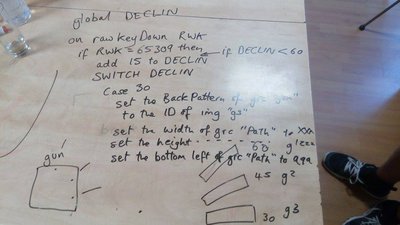 global DECLIN
on rawkeyDown RWK
if RWK = 65309 then if DECLIN < 60
add 15 to DECLIN
SWITCH DECLIN
Case 30
set the BackPattern of grc "gun"
to the ID of img "g5"
set the width of grc "Path" to XXX
set the height
set the bottom left of grc "Path" to aqa
gun
60
45 g2
30 g3